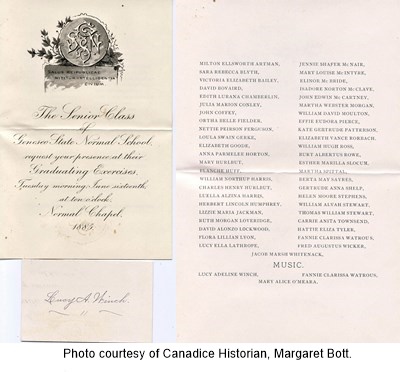 The Senior Class
of
Geneseo State Normal School,
request your presence at their
Graduating Exercises,
Tuesday morning, June sixteenth
at ten o'clock,
Normal Chapel.
1885
Lucy A. Winch.
MILTON ELLSWORTH ARTMAN,
SARA REBECCA BLYTH,
VICTORIA ELIZABETH BAILEY,
DAVID BOVAIRD,
EDITH LURANA CHAMBERLIN,
JULIA MARION CONLEY,
JOHN COFFEY,
ORTHA BELLE FIELDER,
NETTIE PEIRSON FERGUSON,
LOULA SWAIN GERKE,
ELIZABETH GOODE,
ANNA PARMELEE HORTON,
MARY HURLBUT,
BLANCHE HUFF,
WILLIAM NORTHRUP HARRIS,
CHARLES HENRY HURLBUT,
LUELLA ALZINA HARRIS,
HERBERT LINCOLN HUMPHREY,
LIZZIE MARIA JACKMAN,
RUTH MORGAN LOVERIDGE,
DAVID ALONZO LOCKWOOD,
FLORA LILLIAN LYON,
LUCY ELLA LATHROPE,
JENNIE SHAFER McNAIR,
MARY LOUISE McINTYRE,
ELINOR McBRIDE,
ISADORE NORTON McCLAVE,
JOHN EDWIN McCARTNEY,
MARTHA WEBSTER MORGAN,
WILLIAM DAVID MOULTON,
EFFIE EUDORA PIERCE,
KATE GERTRUDE PATTERSON,
ELIZABETH VANCE RORBACH,
WILLIAM HUGH ROSS,
BURT ALBERTUS ROWE,
ESTHER MARILLA SLOCUM,
MARTHA SPITTAL,
BERTA MAY SAYRES,
GERTRUDE ANNA SHELP,
HELEN MOORE STEPHENS,
WILLIAM ALVAH STEWART,
THOMAS WILLIAM STEWART,
CARRIE ANITA TOWNSEND,
HATTIE ELIZA TYLER,
FANNIE CLARISSA WATROUS,
FRED AUGUSTUS WICKER,
JACOB MARSH WHITENACK,
MUSIC.
LUCY ADELINE WINCH,
FANNIE CLARISSA WATROUS,
MARY ALICE O'MEARA.
Photo courtesy of Canadice Historian, Margaret Bott.